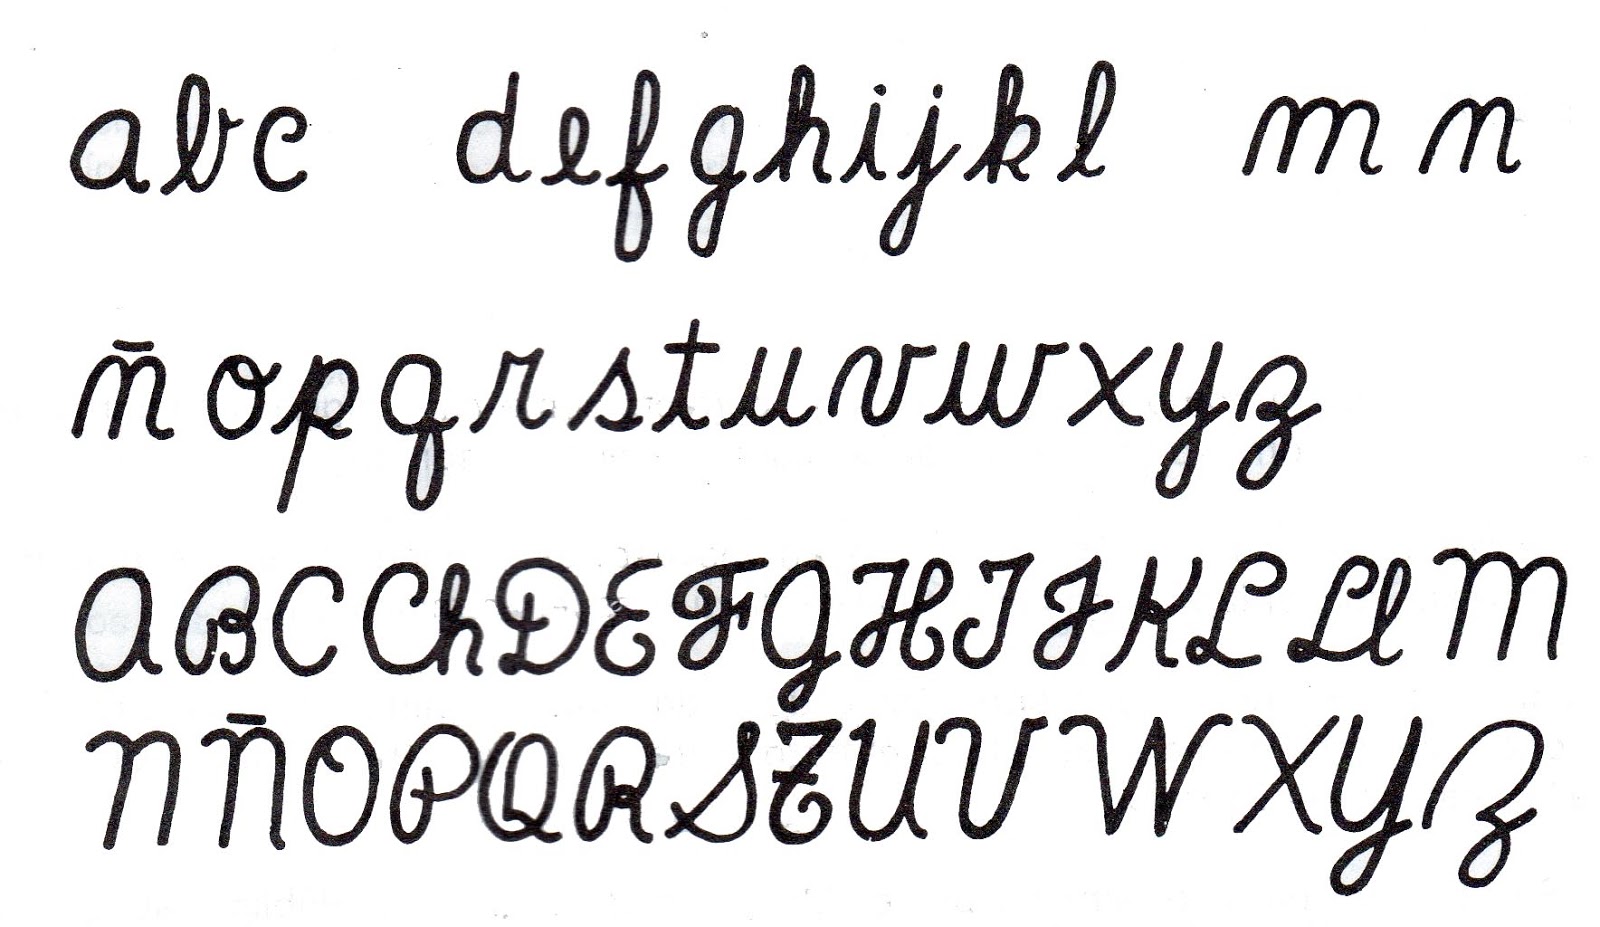 a b c d e f g h i j k l m n
ñ o p q r s t u v w x y z
A B C Ch D E F G H I J K L Ll M
N Ñ O P Q R S T U V W X Y Z